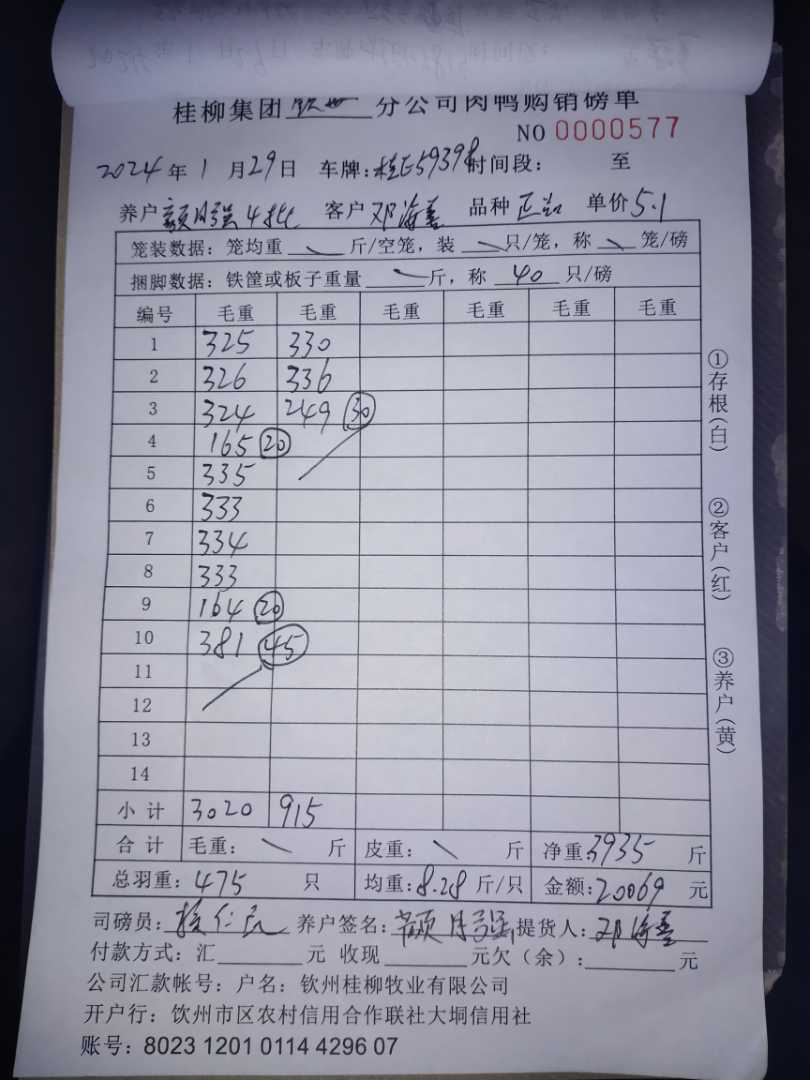 桂柳集团 钦州 分公司肉鸭购销磅单
NO 0000577
2024年1月29日 车牌：桂E59398 时间段： 至
养户 颜月强4批 客户 邓海善 品种 单价5.1
笼装数据：笼均重 斤/空笼，装 只/笼，称 笼/磅
捆脚数据：铁筐或板子重量 斤，称 40 只/磅
编号 毛重 毛重 毛重 毛重 毛重 毛重
1 325 330
2 326 336
3 324 249 30
4 165 20
5 335
6 333
7 334
8 333
9 164 20
10 381 45
11
12
13
14
小计 3020 915
合计 毛重： 斤 皮重： 斤 净重：3935 斤
总羽重：475 只 均重：8.28 斤/只 金额：20069 元
司磅员： 养户签名：颜月强 提货人：邓海善
付款方式：汇 元 收现 元欠（余）： 元
公司汇款帐号：户名：钦州桂柳牧业有限公司
开户行：钦州市区农村信用合作联社大垌信用社
账号：8023 1201 0114 4296 07
①存根（白）
②客户（红）
③养户（黄）